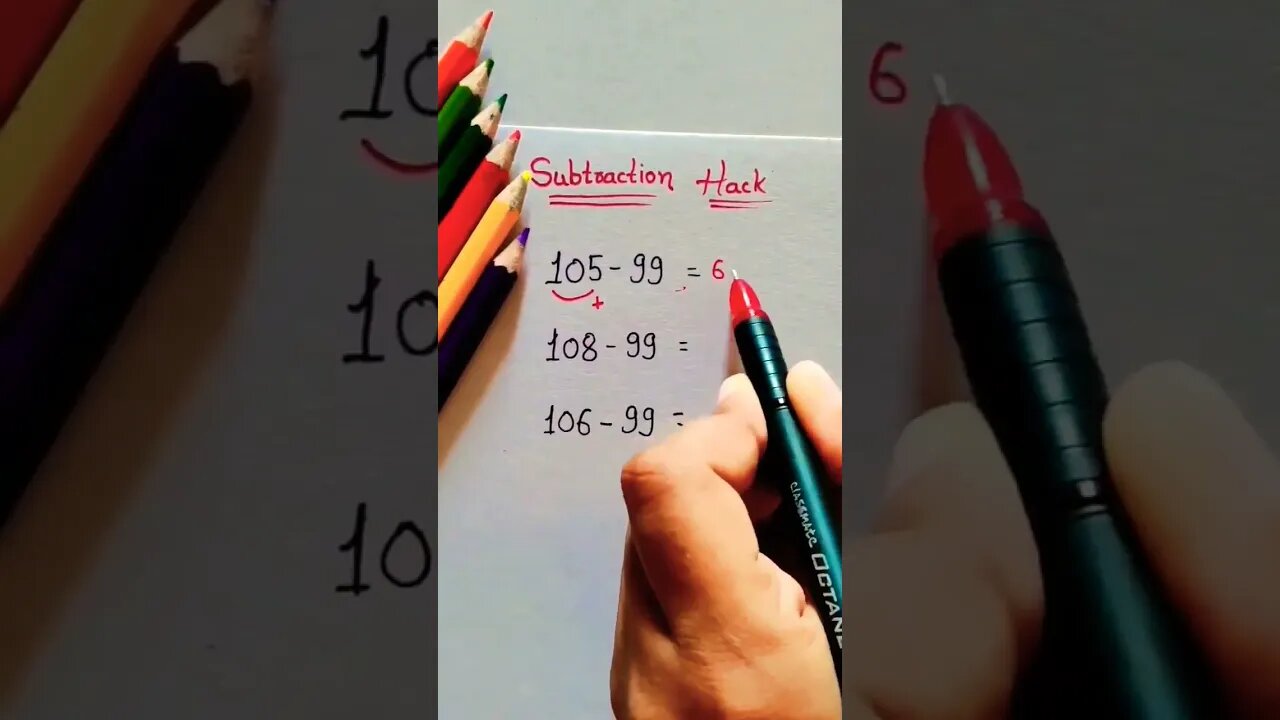 Subtraction Hack
105 - 99 = 6
+
108 - 99 =
106 - 99 =
classmate OCTANE